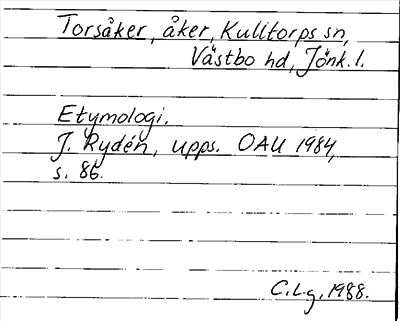 Torsåker, åker, Kulltorps sn,
Västbo hd, Jönk. l.
Etymologi.
J. Rydén, upps. OAU 1984,
s. 86.
C.Lg, 1988.